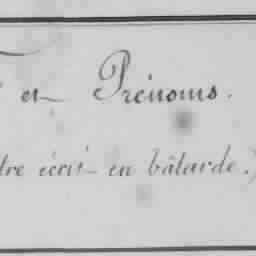 et Prénoms.
tre écrit en bâtarde.)